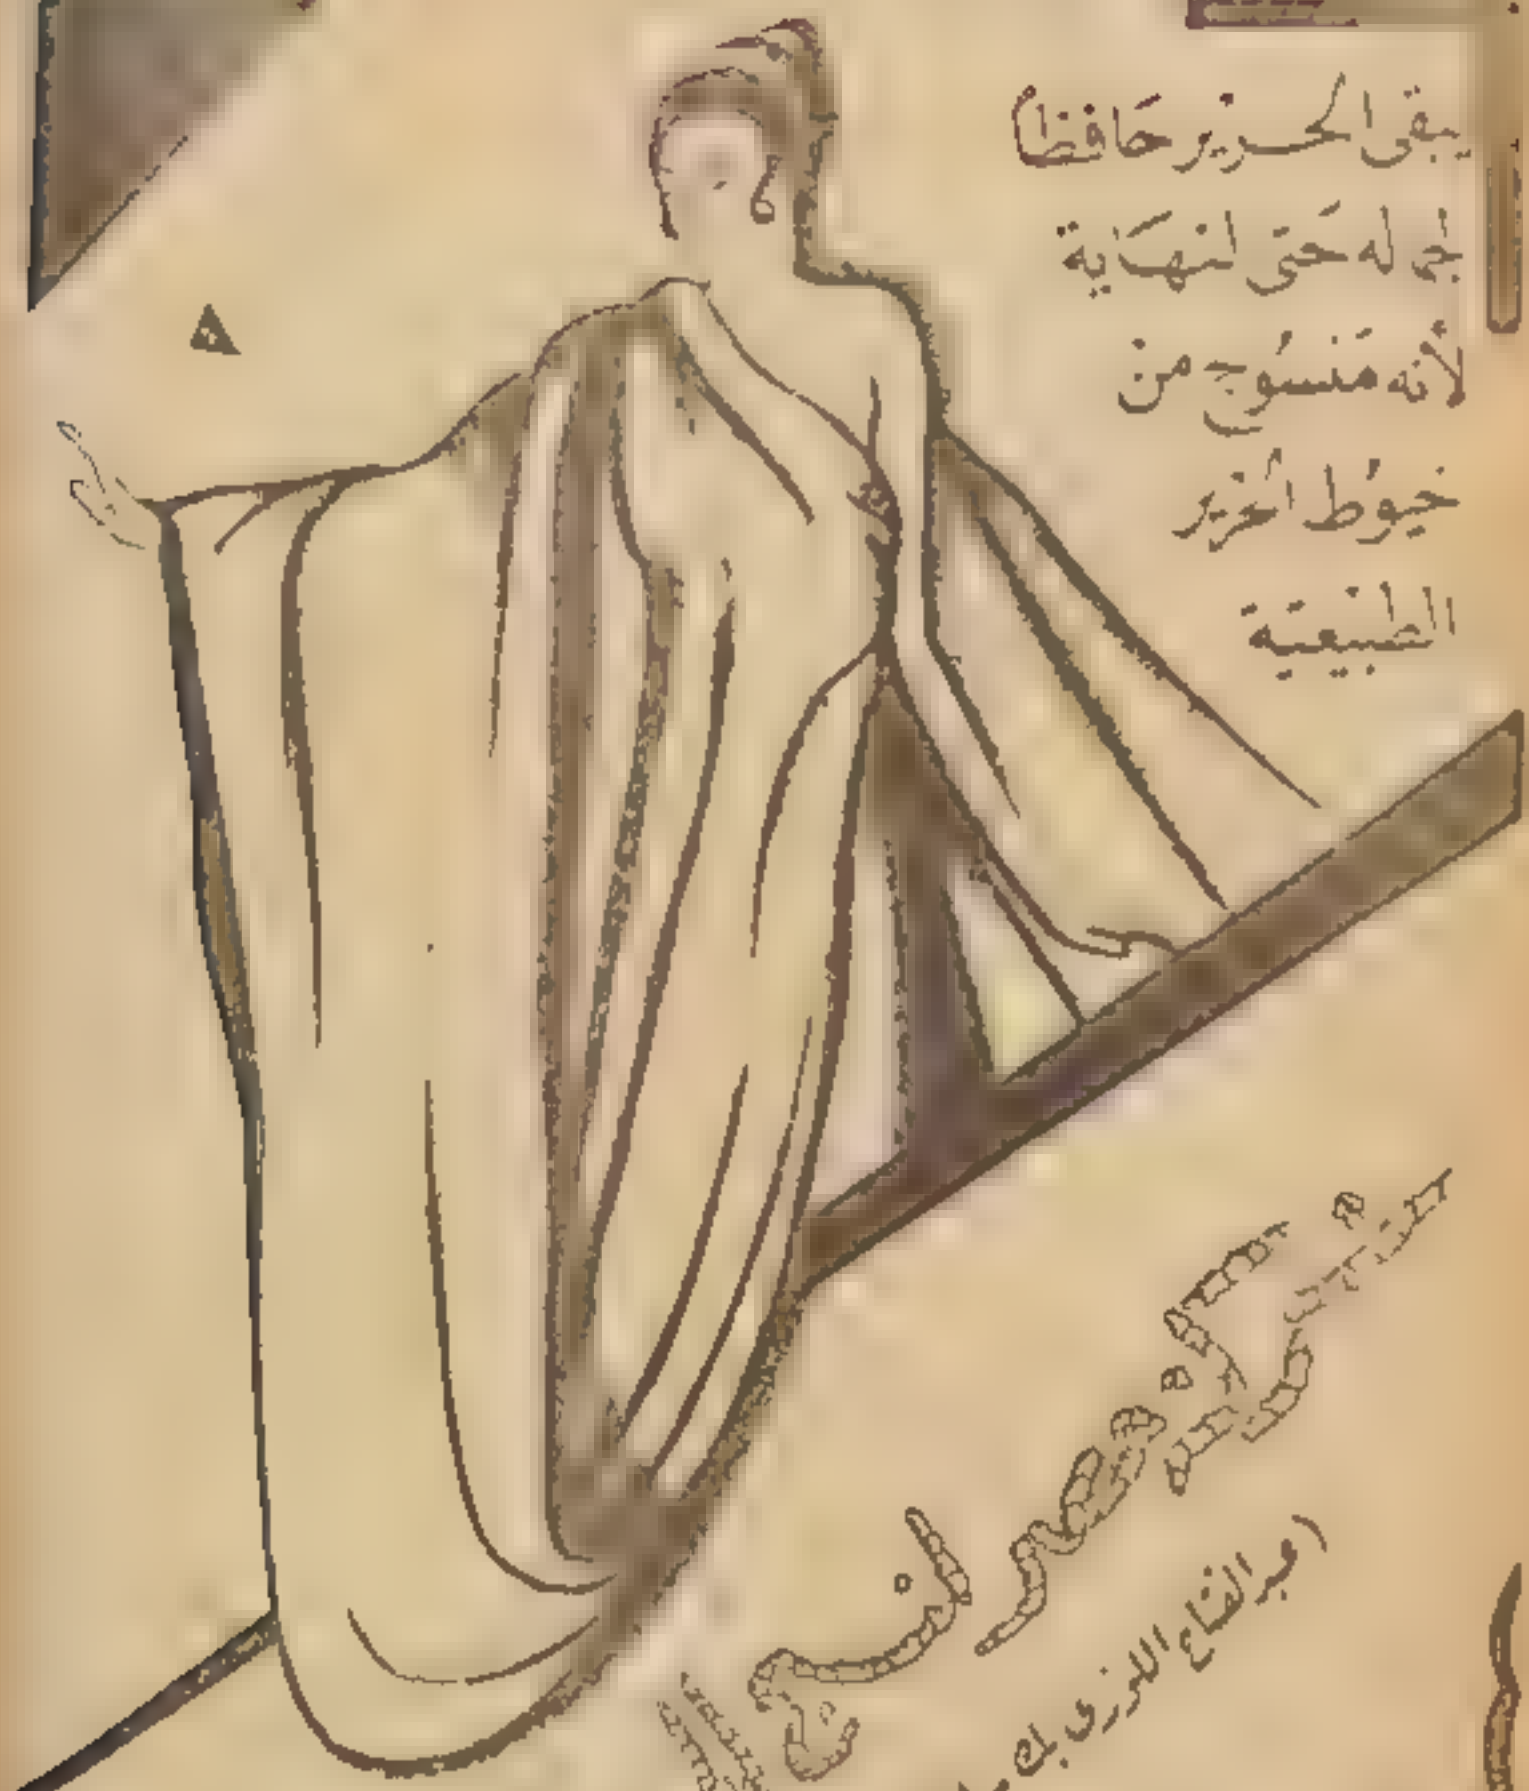 يبقى الحرير حَافظاً
لجماله حَتى لنهَاية
لأنه مَنسُوج من
خيوُط الحرير
الطبيعيّة
شركة مصر
(عبد الفتاح اللوزى بك